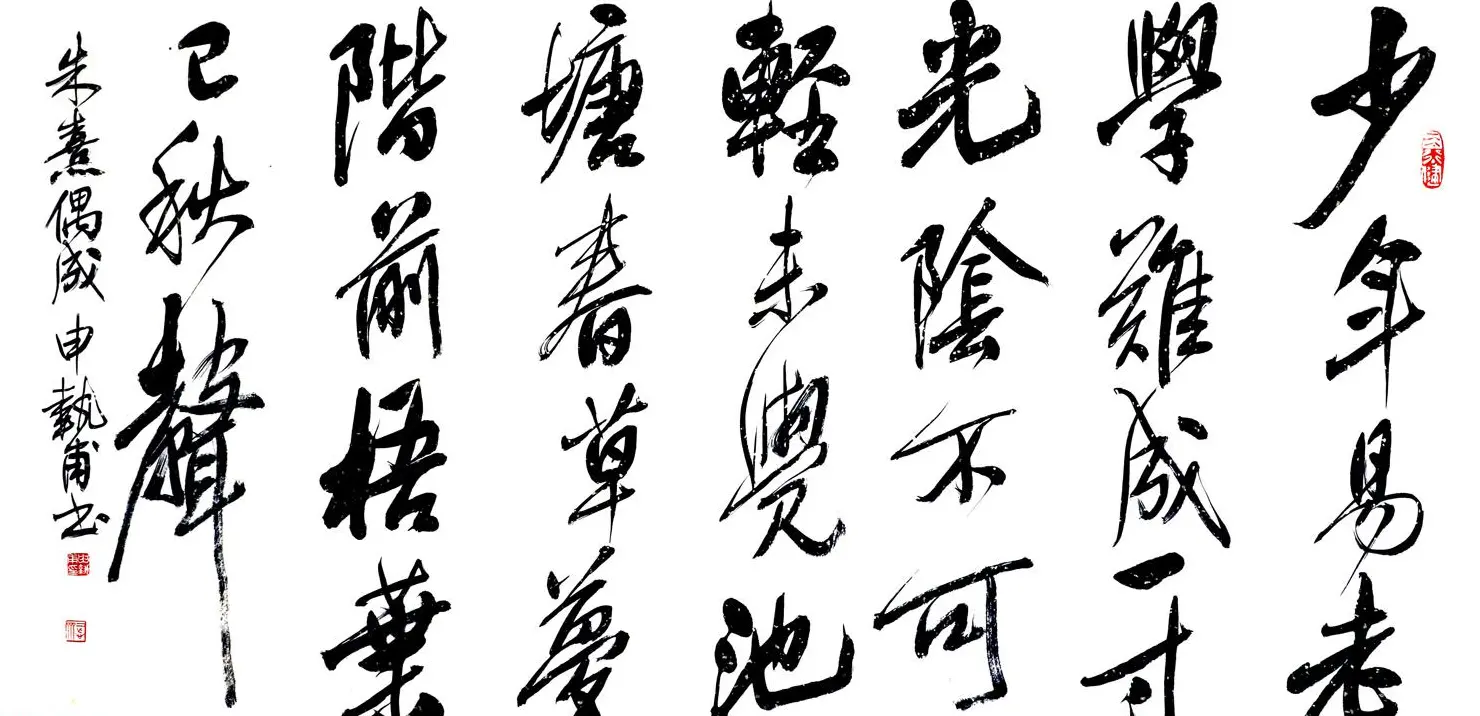 少年易老
學難成一寸
光陰不可
輕未覺池
塘春草夢
階前梧葉
已秋聲
朱熹偶成 申執甫书